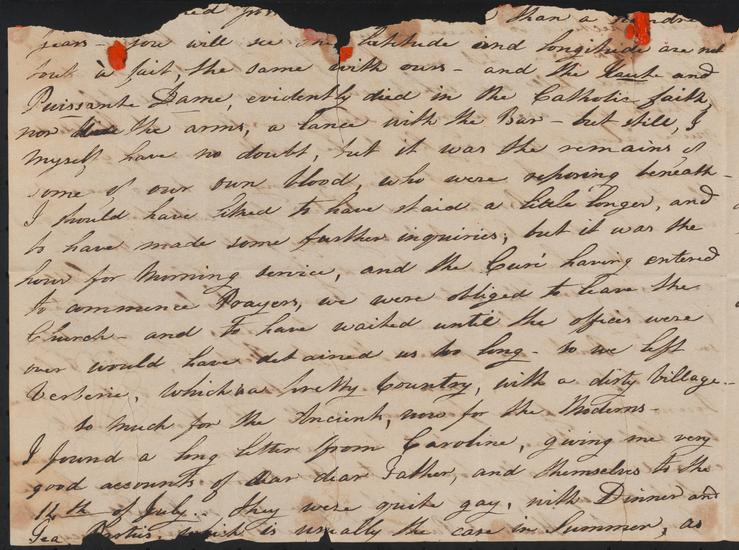 than a hundred
years - you will see the latitude and longitude are not
tout à fait, the same with ours - and the Haute and
Puissante Dame, evidently died in the Catholic faith,
nor the arms, a lance with the Bar - but still, I
myself, have no doubt, but it was the remains of
some of our own blood, who were reposing beneath -
I should have liked to have staid a little longer, and
to have made some further inquiries, but it was the
hour for Morning service, and the Curé having entered
to commence Prayers, we were obliged to leave the
Church - and to have waited until the offices were
over would have detained us too long - so we left
Verberie, which is a pretty Country, with a dirty Village -
so much for the Ancients, now for the Moderns -
I found a long letter from Caroline, giving me very
good accounts of dear dear Father, and themselves to the
14th of July. They were quite gay, with Dinner and
Tea Parties, which is usually the case in Summer, as